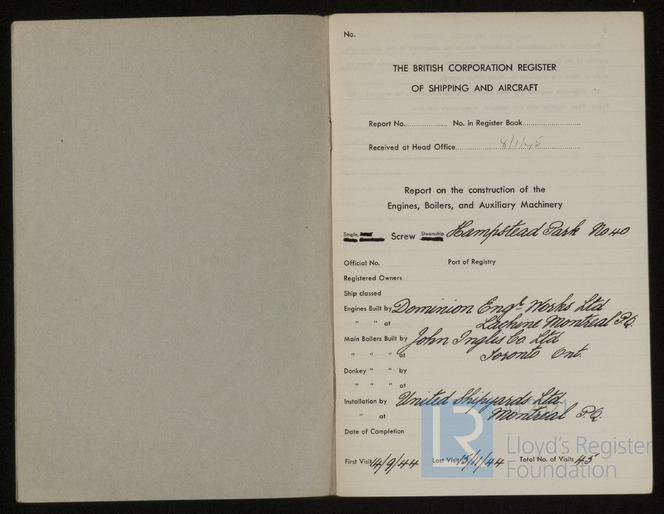 No.
THE BRITISH CORPORATION REGISTER
OF SHIPPING AND AIRCRAFT
Report No. No. in Register Book
Received at Head Office 8/1/45
Report on the construction of the
Engines, Boilers, and Auxiliary Machinery
Single, Screw Steamship Hampstead Park No 40
Official No. Port of Registry
Registered Owners
Ship classed
Engines Built by Dominion Engr. Works Ltd
" " at Lachine Montreal P.Q.
Main Boilers Built by John Inglis Co. Ltd
" " " at Toronto Ont.
Donkey " " by
" " " at
Installation by United Shipyards Ltd.
" at Montreal P.Q.
Date of Completion
First Visit 14/9/44 Last Visit 15/11/44 Total No. of Visits 45
LR
Lloyd's Register
Foundation